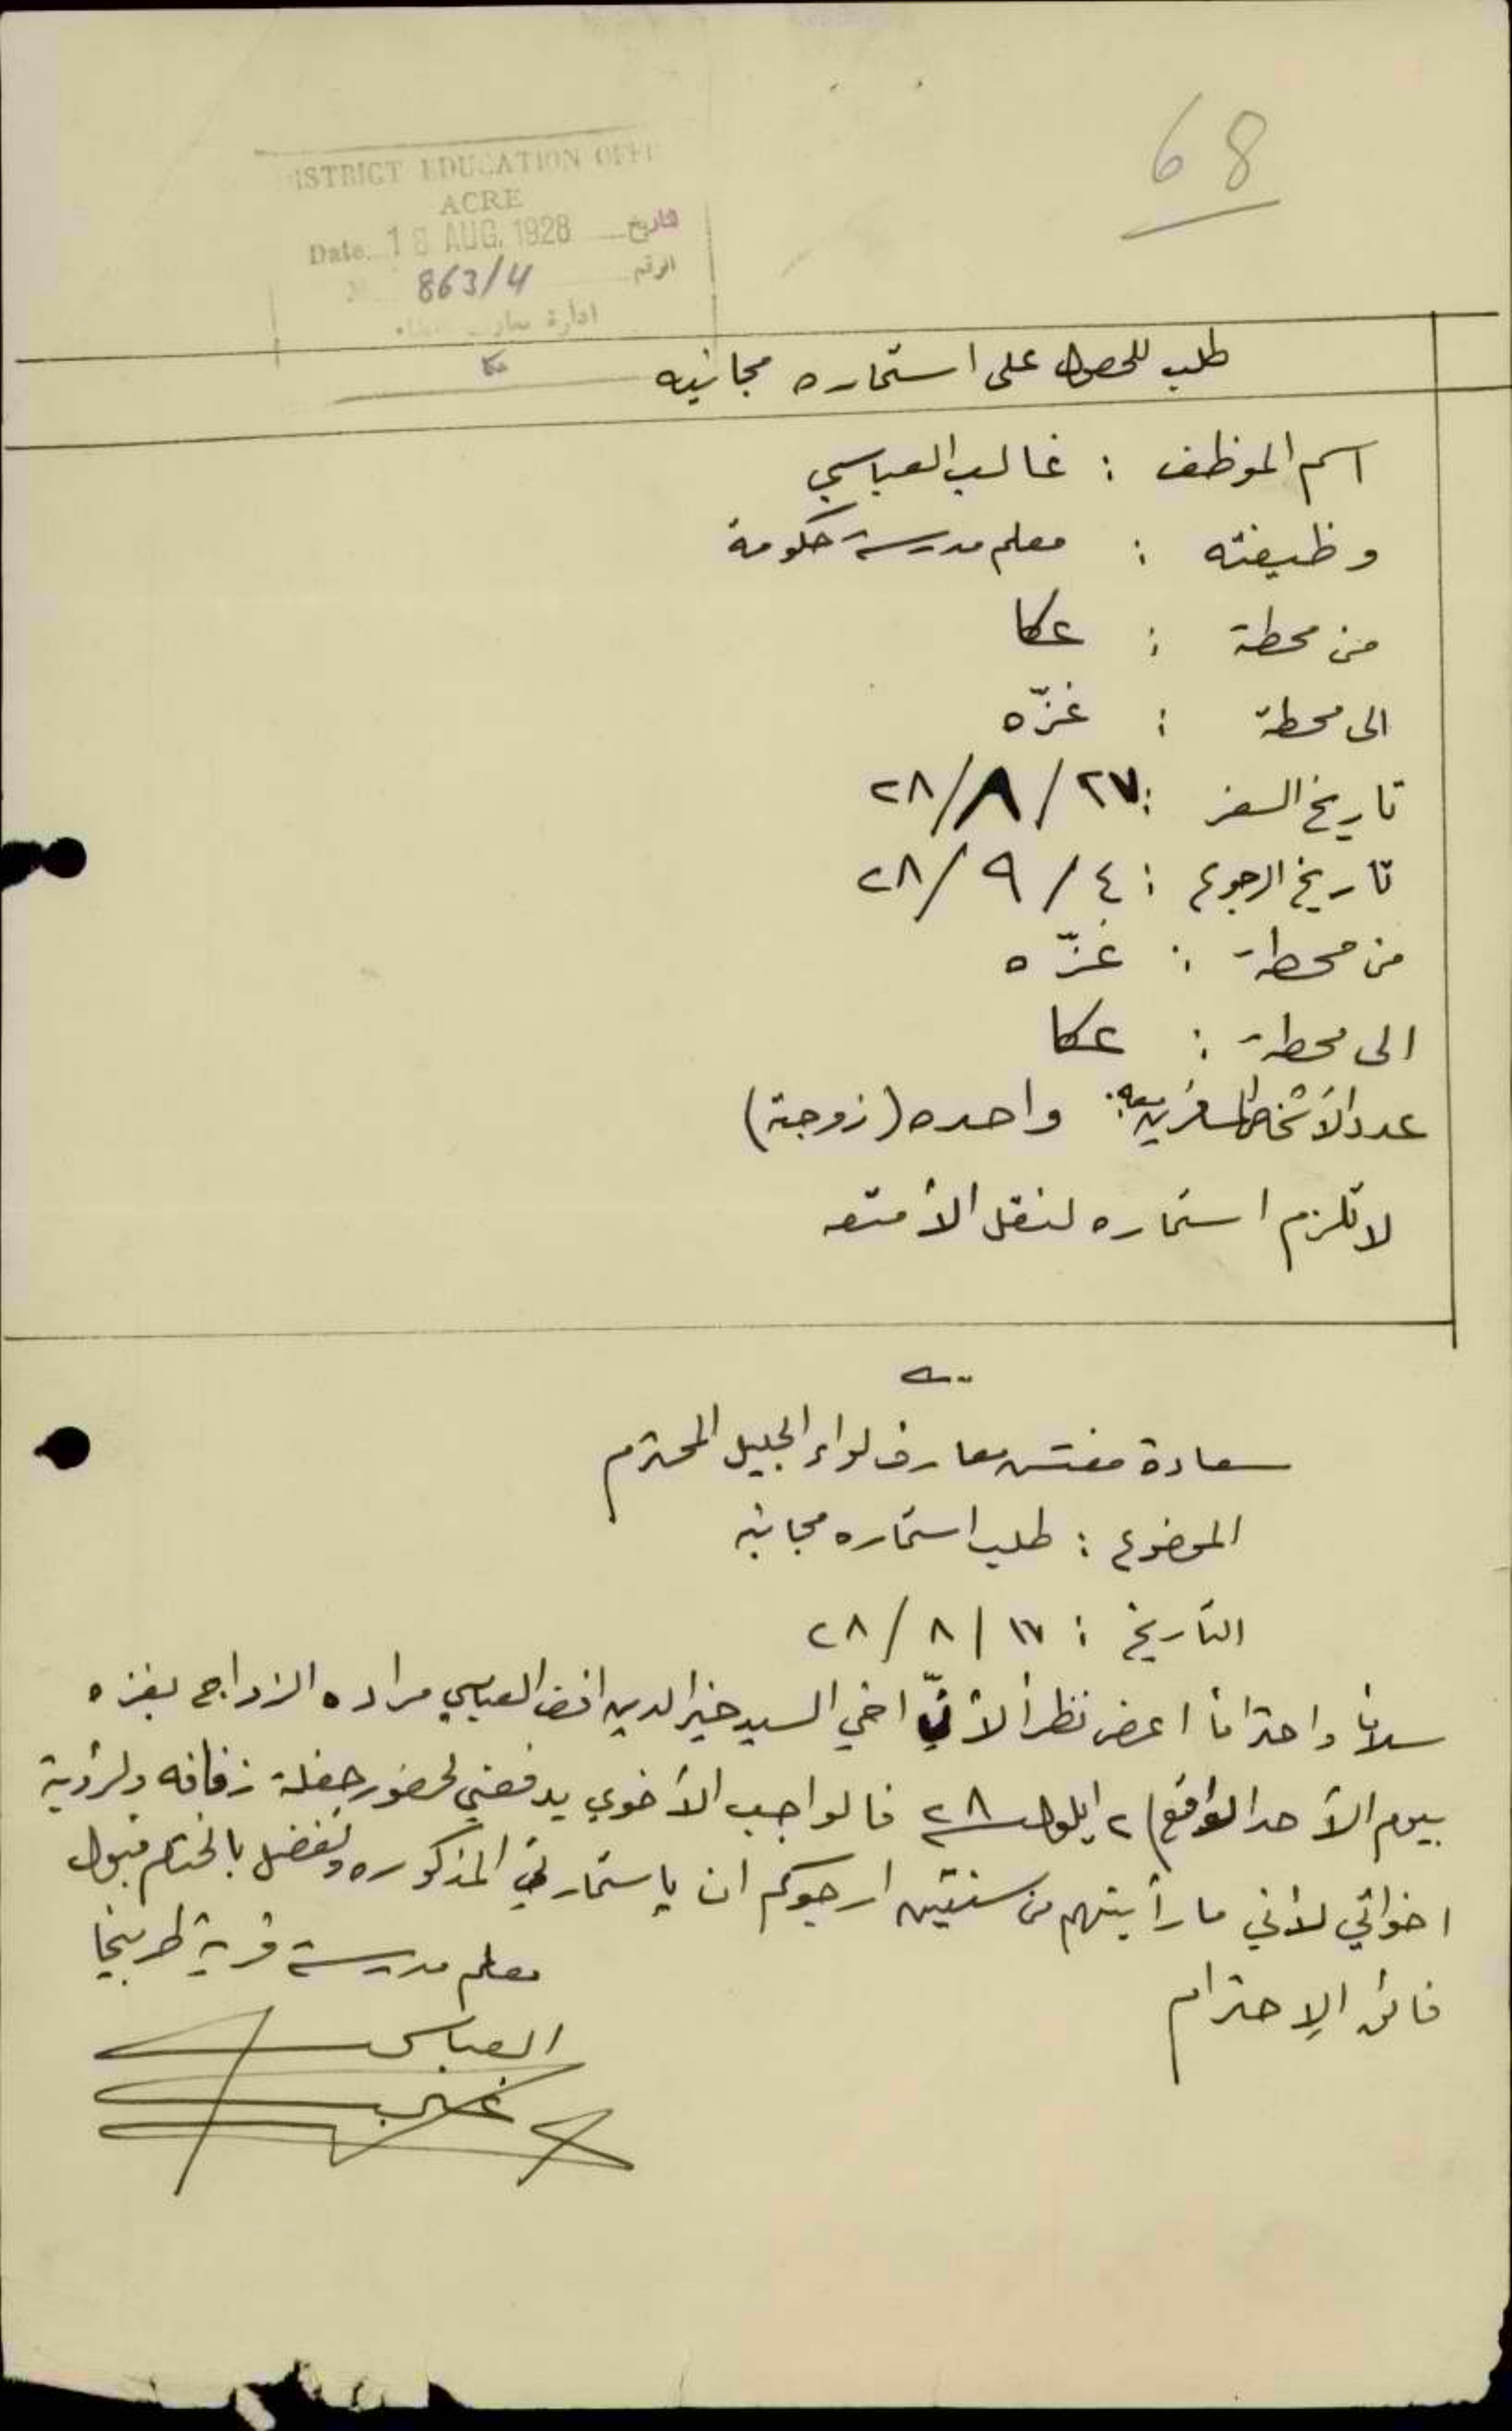 68
DISTRICT EDUCATION OFFI
ACRE
Date 18 AUG. 1928 تاريخ
863/4 الرقم
ادارة معارف
عكا
طلب للحصول على استماره مجانيه
اسم الموظف : غالب العباسي
وظيفته : معلم مدرسة حكومة
من محطة : عكا
الى محطة : غزّه
تاريخ السفر : ٢٧ / ٨ / ٢٨
تاريخ الرجوع : ٤ / ٩ / ٢٨
من محطة : غزّه
الى محطة : عكا
عدد الأشخاص المسافرين معه : واحده (زوجة)
لا تلزم استماره لنقل الأمتعه
سعادة مفتش معارف لواء الجليل المحترم
الموضوع : طلب استماره مجانيه
التاريخ : ١٧ / ٨ / ٢٨
سلاماً واحتراماً اعرض نظراً لأنّ اخي السيد خير الدين افندي العباسي مراده الزواج بغزه
بيوم الأحد الواقع ٢ ايلول ٢٨ فالواجب الأخوي يدفعني لحضور حفلة زفافه ولرؤية
اخواتي لأني ما رأيتهم من سنتين ارجوكم ان باستمارتي المذكوره وتفضل بالختام قبول
فائق الإحترام
معلم مدرسة قرية طربيخا
العباسي
غالب